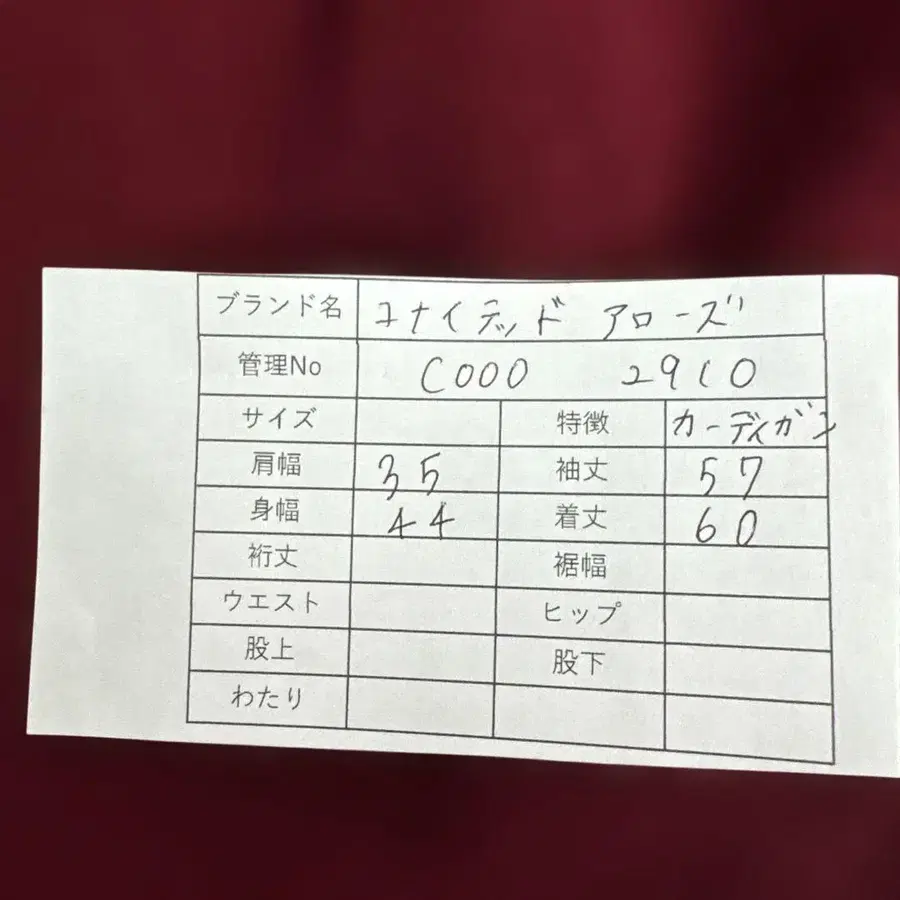 ブランド名 ユナイテッド アローズ
管理No C000 2910
サイズ 特徴 カーディガン
肩幅 35 袖丈 57
身幅 44 着丈 60
裄丈 裾幅
ウエスト ヒップ
股上 股下
わたり